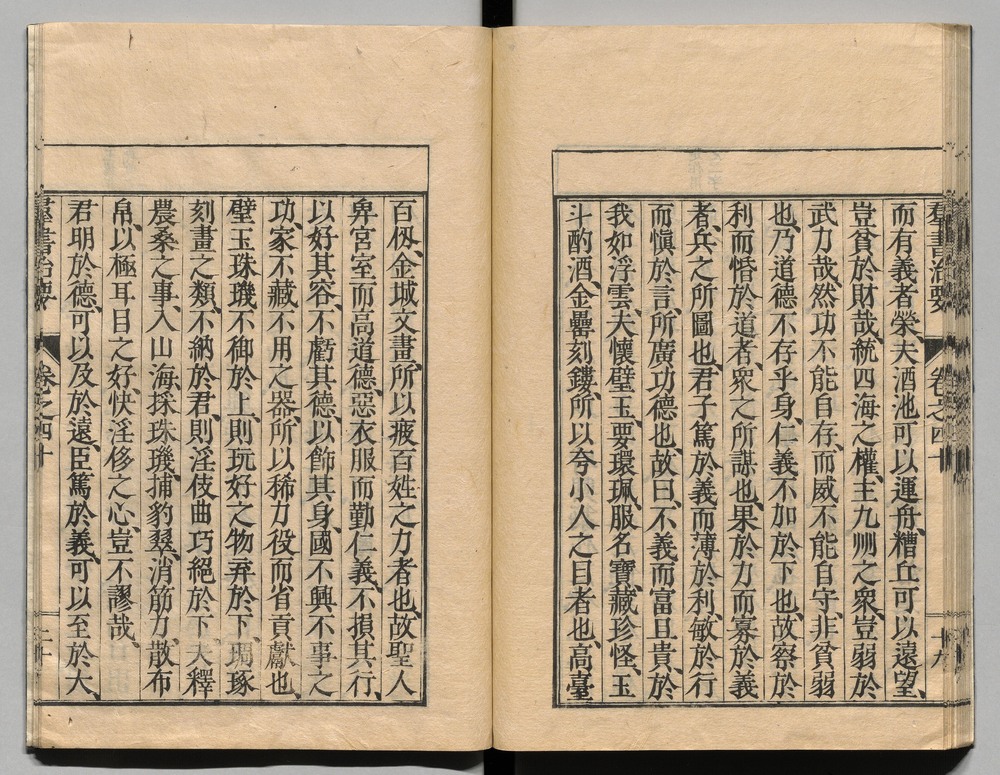 羣書治要 卷之四十 十九
而有義者榮、夫酒池可以運舟、糟丘可以遠望、
豈貧於財哉、統四海之權、主九州之衆、豈弱於
武力哉、然功不能自存、而威不能自守、非貧弱
也、乃道德不存乎身、仁義不加於下也、故察於
利而惛於道者、衆之所謀也、果於力而寡於義
者、兵之所圖也、君子篤於義而薄於利、敏於行
而愼於言、所廣功德也、故曰、不義而富且貴、於
我如浮雲、夫懷璧玉、要環珮、服名寶、藏珍怪、玉
斗酌酒、金罍刻鏤、所以夸小人之目者也、高臺
百仭、金城文畫、所以疲百姓之力者也、故聖人
卑宮室而高道德、惡衣服而勤仁義、不損其行、
以好其容、不虧其德、以飾其身、國不興不事之
功、家不藏不用之器、所以稀力役而省貢獻也、
璧玉珠璣、不御於上、則玩好之物弃於下、琱琢
刻畫之類、不納於君、則淫伎曲巧絕於下、夫釋
農桑之事、入山海、採珠璣、捕豹翠、消筋力、散布
帛、以極耳目之好、快淫侈之心、豈不謬哉、
君明於德、可以及於遠、臣篤於義、可以至於大、
羣書治要 卷之四十 二十